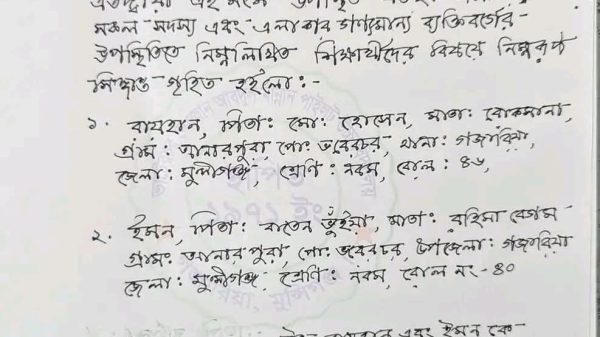 সকল সদস্য এবং এলাকার গণ্যমান্য ব্যক্তিবর্গের-
উপস্থিতিতে নিম্নলিখিত শিক্ষার্থীদের বিষয়ে নিম্নরূপ
সিদ্ধান্ত গৃহিত হইলো:-
১. রায়হান, পিতা: মো: হোসেন, মাতা: রোকসানা,
গ্রাম: আনারপুরা, পো: ভবেরচর, থানা: গজারিয়া,
জেলা: মুন্সীগঞ্জ, শ্রেণি: নবম, রোল: ৪৬,
২. ইমন, পিতা: বাতেন ভুঁইয়া মাতা: রহিমা বেগম
গ্রাম: আনারপুরা, পো: ভবেরচর, উপজেলা: গজারিয়া
জেলা: মুন্সীগঞ্জ শ্রেণি: নবম, রোল নং-৪০
এবং ইমন কে-